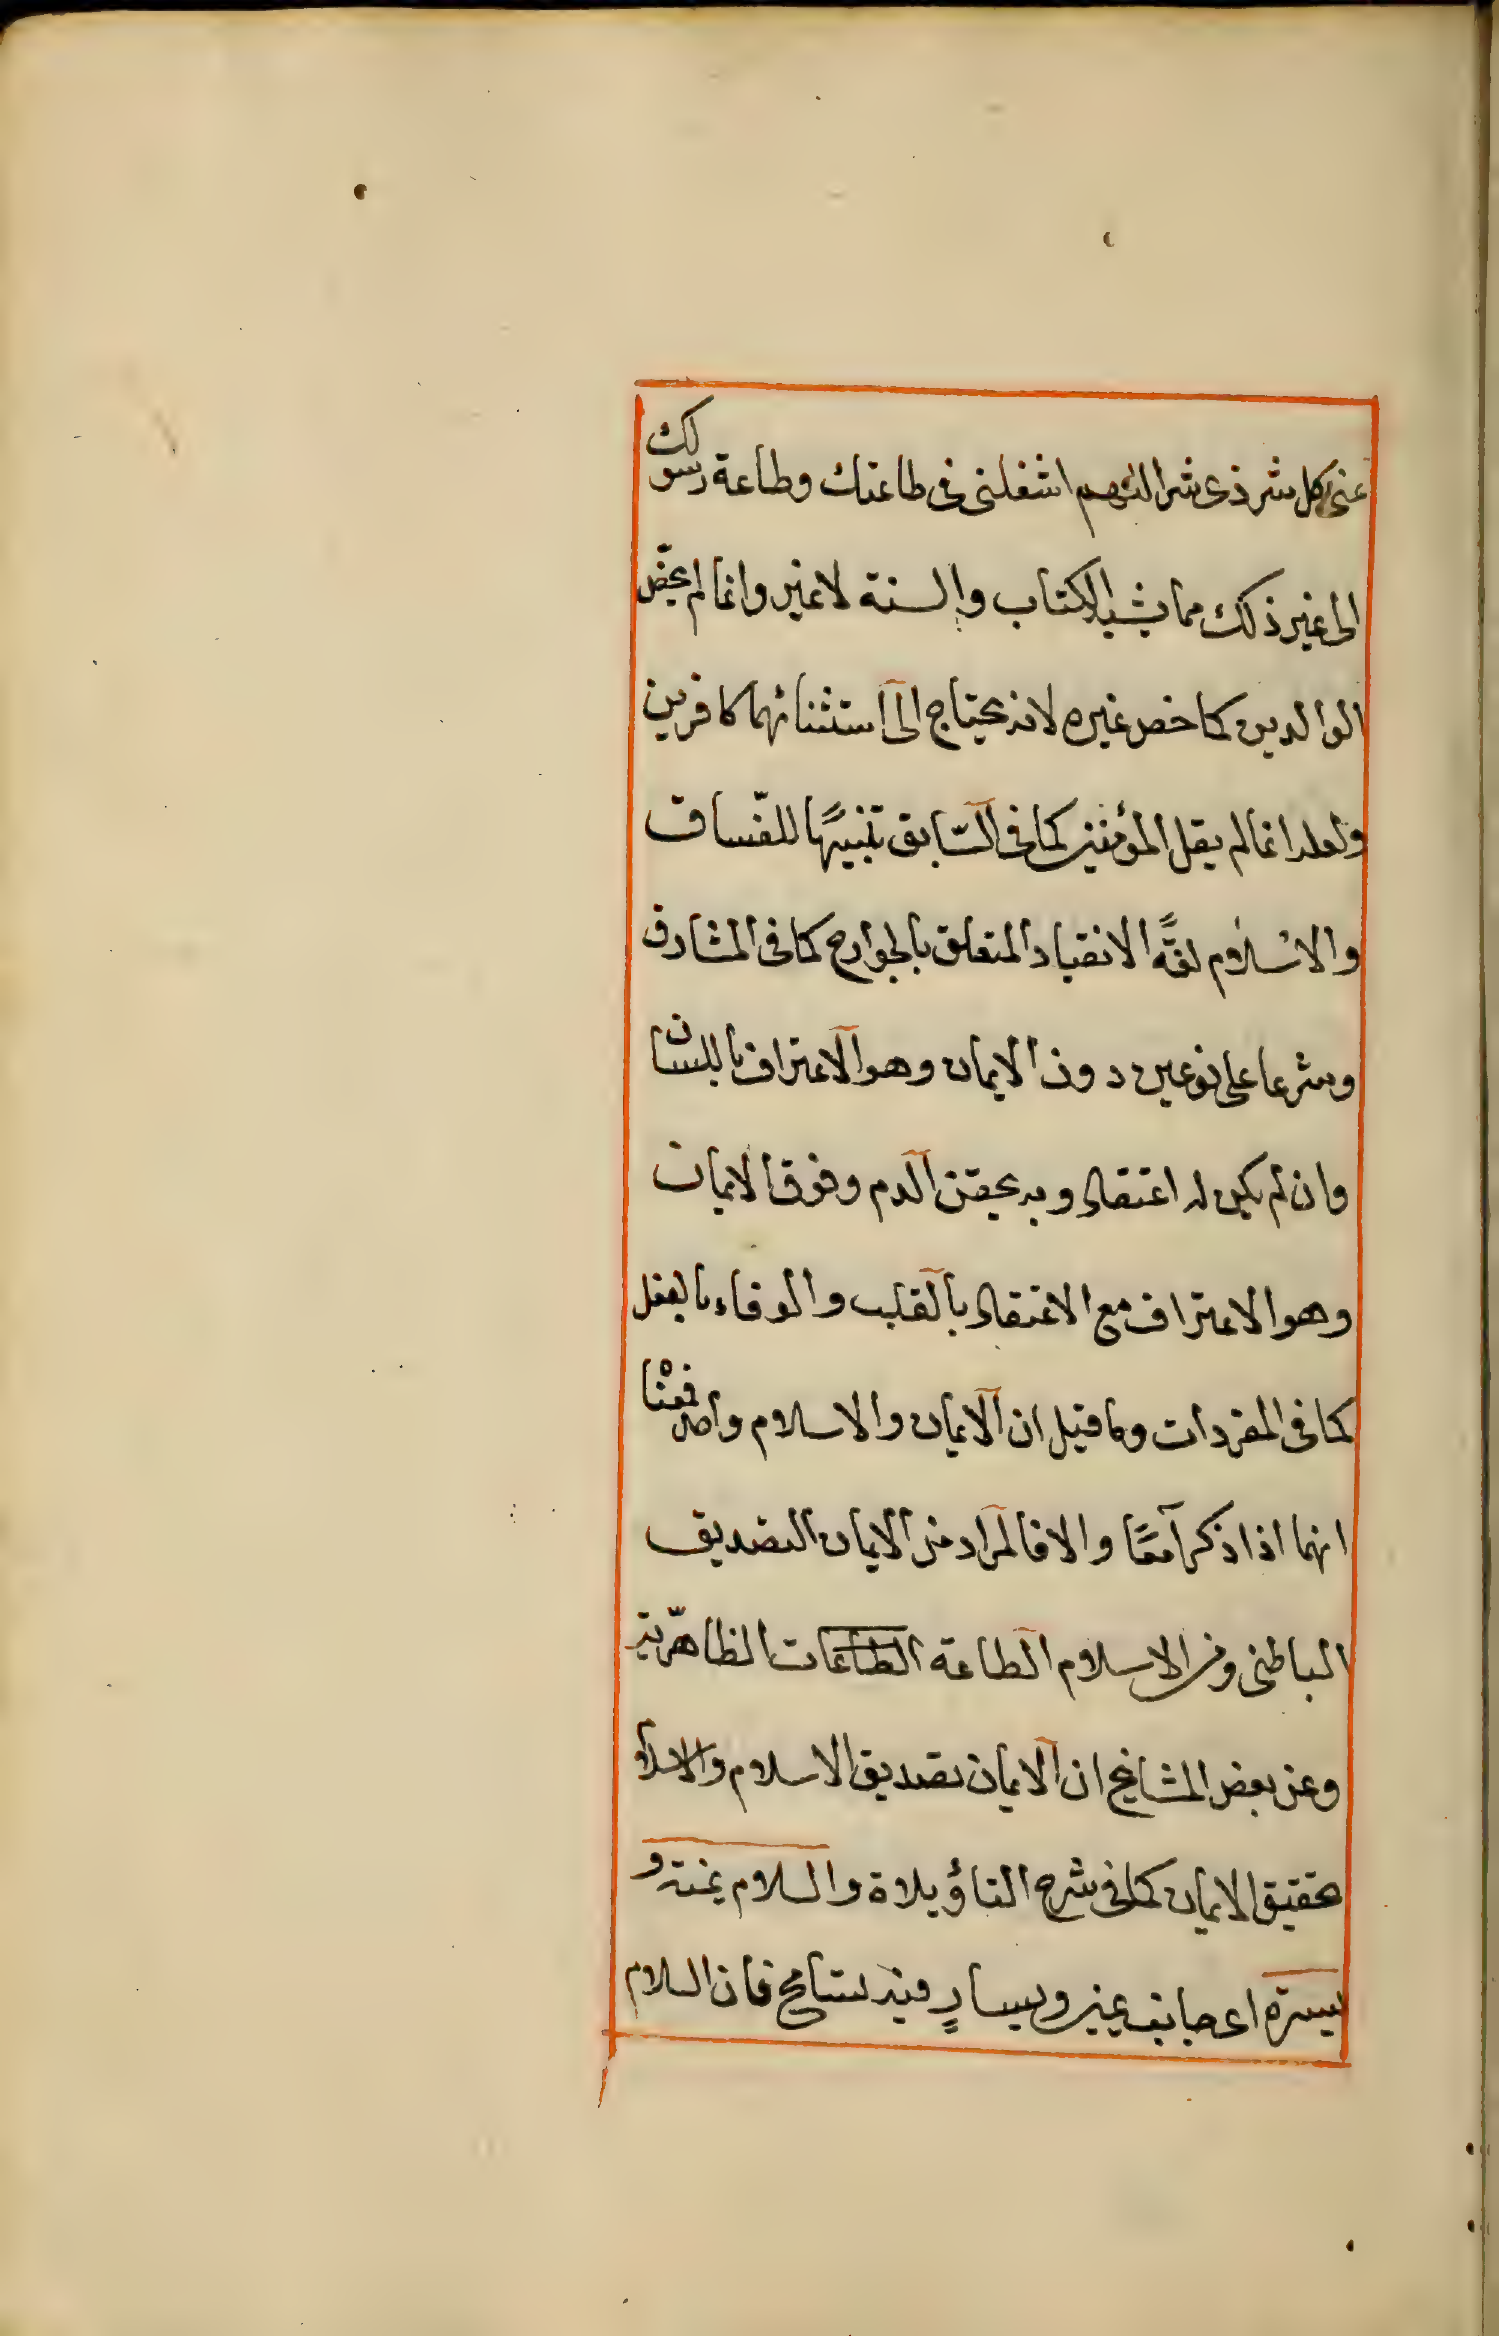 عنى كل شر ذى شر اللهم اشغلنى فى طاعتك وطاعة رسولك
الى غير ذلك مما يشبه الكتاب والسنة لا غير وانما لم يخص
الوالدين كما خص غيره لانه يحتاج الى استثنائهما كافرين
ولعله انما لم يقل المؤمنين كما فى السّابق تنبيهًا للفسّاق
والاسلام لغةً الانقياد المتعلق بالجوارح كما فى المشارق
وشرعا على نوعين دون الايمان وهو الاعتراف باللسان
وان لم يكن له اعتقاد وبه يحقن الدم وفوق الايمان
وهو الاعتراف مع الاعتقاد بالقلب والوفاء بالفعل
كما فى المفردات وما قيل ان الايمان والاسلام واحد فمعنا
انهما اذا ذكرا معًا والا فالمراد من الايمان التصديق
الباطنى ومن الاسلام الطاعة الطاعات الظاهريّة
وعن بعض المشايخ ان الايمان تصديق الاسلام والاسلام
تحقيق الايمان كما فى شرح التاؤيلاة والسلام يمنته و
يسرة اى بجانب يمين ويسارٍ فيه تسامح فان السلام